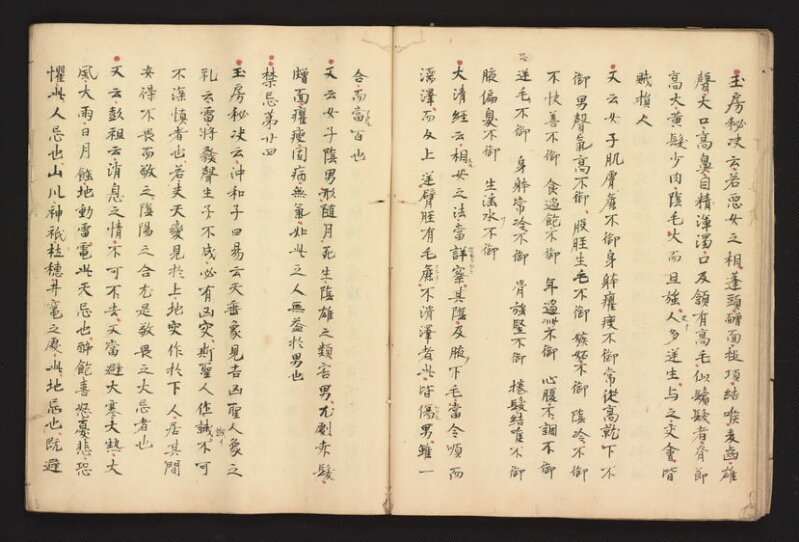 玉房秘决云若悪女之相蓬頭面搥項結喉麦齒雄
聲大口高鼻目精渾濁口及頷有高毛似鬚髮者骨節
高大黄髮少肉陰毛大而且強人多逆生与之交會皆
賊損人
又云女子肌膚麁不御身躰癯瘦不御常從高就下不
御男聲氣高不御股脛生毛不御嫉妬不御陰冷不御
不快善不御食過飽不御年過卌不御心腹不調不御
逆毛不御身躰常冷不御骨強堅不御捲髮結喉不御
腋偏臭不御生淫水不御
大清経云相女之法當詳察其陰及腋下毛當令順而
濡澤而反上逆臂脛有毛麁不滑澤者此皆傷男雖一
合而當百也
又云女子陰男形隨月死生陰雄之類害男尤劇赤髮
面癯瘦固病無氣如此之人無益於男也
禁忌第廿四
玉房秘决云沖和子曰易云天垂象見吉凶聖人象之
礼云雷将發聲生子不成必有凶灾斯聖人作誡不可
不深慎者也若夫天變見於上地灾作於下人居其間
安得不畏而敬之陰陽之合尤是敬畏之大忌者也
又云彭祖云消息之情不可不去又當避大寒大熱大
風大雨日月蝕地動雷電此天忌也醉飽喜怒憂悲恐
懼此人忌也山川神祇社稷井竈之處此地忌也既避